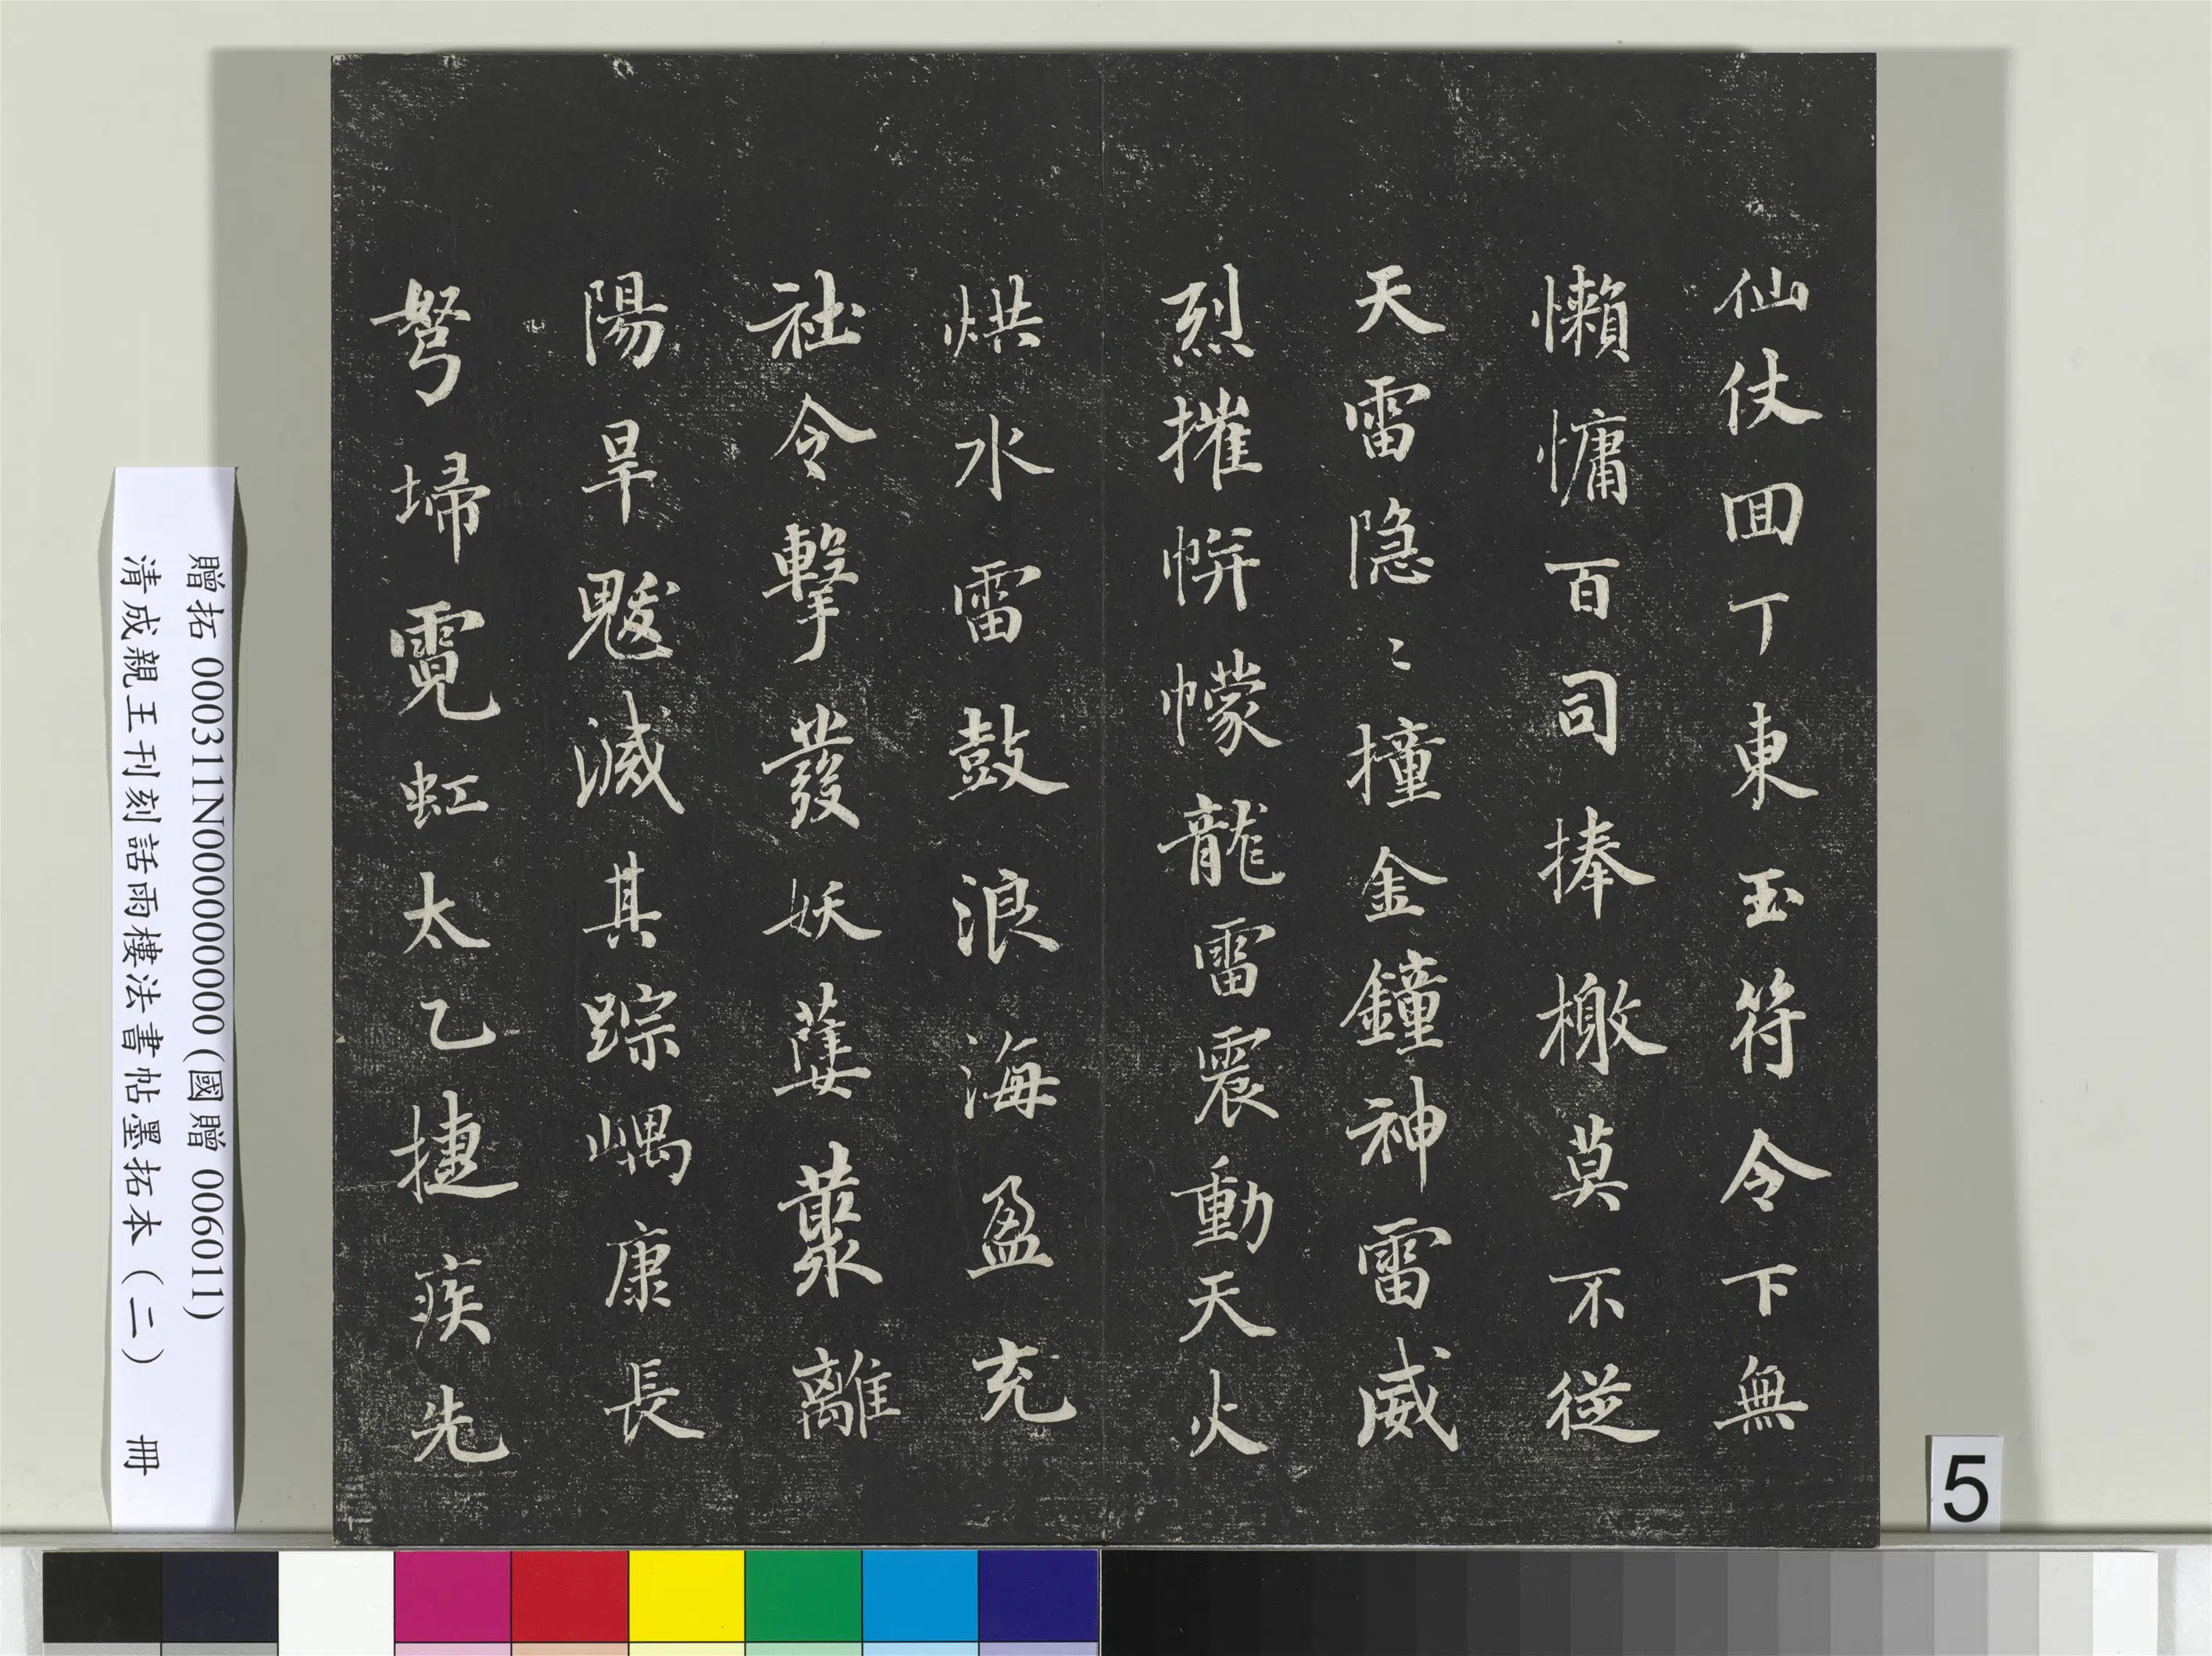 仙仗囬丁東玉符令下無
懶慵百司捧檄莫不從
天雷隐〻撞金鐘神雷威
烈摧帡幪龍雷震動天火
烘水雷鼓浪海盈充
社令擊發妖蔞藂離
陽旱魃滅其踪嵎康長
弩埽霓虹太乙捷疾先
贈拓 000311N000000000 (國贈 006011)
清成親王刊刻話雨樓法書帖墨拓本（二） 冊
5